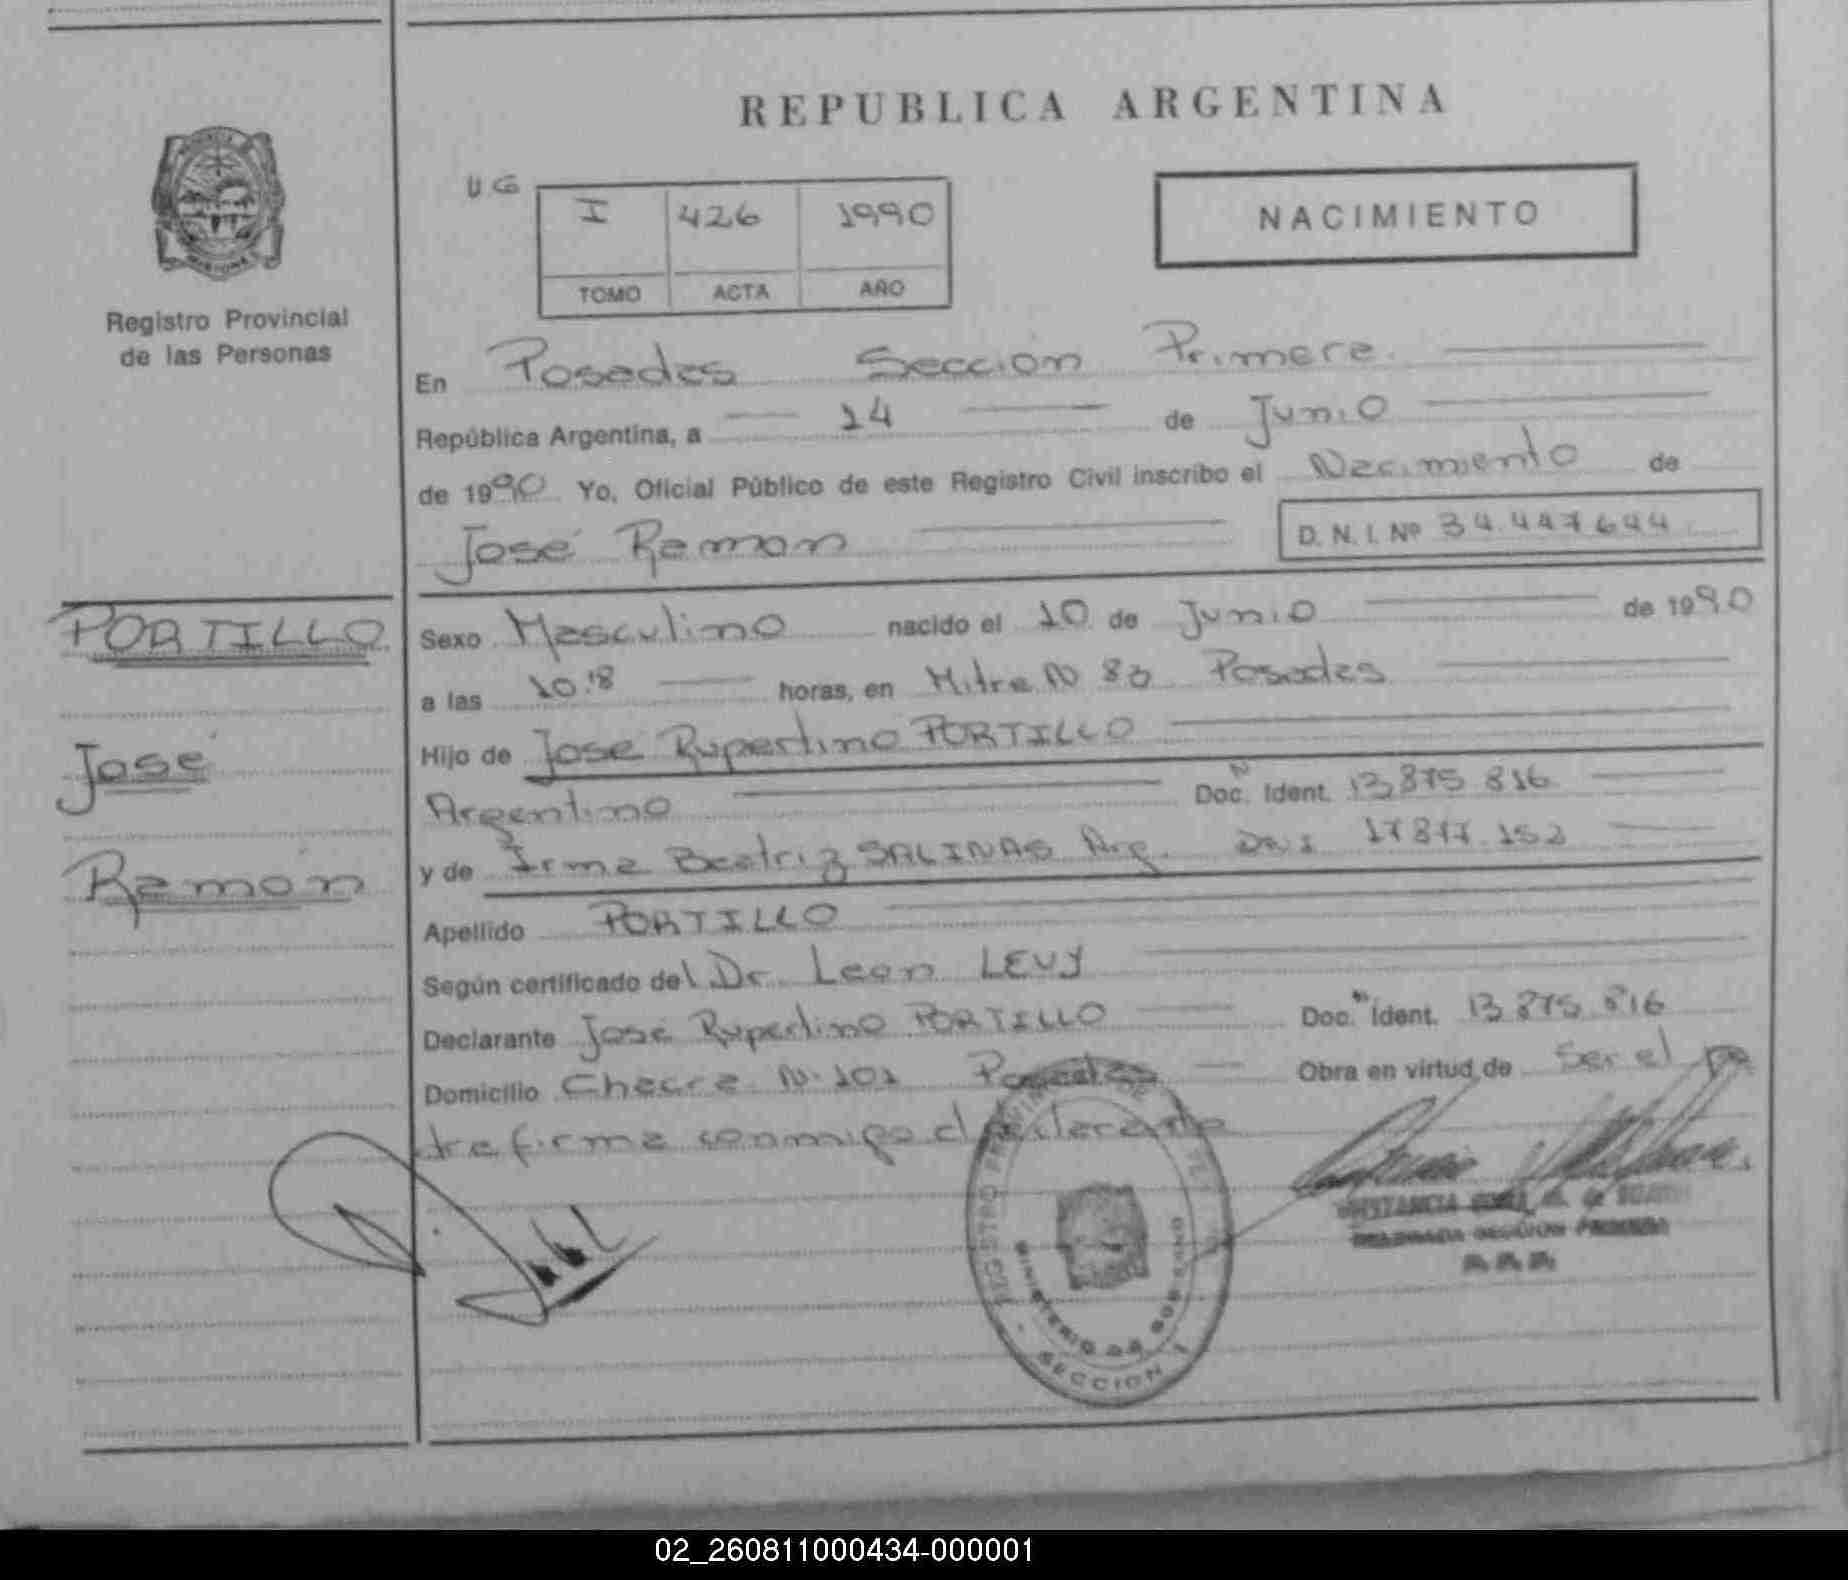 REPUBLICA ARGENTINA
UG
I 426 1990
TOMO ACTA AÑO
NACIMIENTO
Registro Provincial
de las Personas
En Posadas Sección Primera
República Argentina, a 14 de Junio
de 1990 Yo, Oficial Público de este Registro Civil inscribo el Nacimiento de
José Ramon D. N. I. Nº 34.447644
PORTILLO
José
Ramón
Sexo Masculino nacido el 10 de Junio de 1990
a las 10:18 horas, en Mitre N 83 Posadas
Hijo de José Rupertino PORTILLO
Argentino Doc. Ident. 13,875 816
y de Irma Beatriz SALINAS Arg. DNI 17877.152
Apellido PORTILLO
Según certificado del Dr. Leon LEVY
Declarante José Rupertino PORTILLO Doc. Ident. 13 875.816
Domicilio Chacra N. 101 Posadas Obra en virtud de Ser el pa
dre firma conmigo declarante
REGISTRO PROVINCIAL DE
MINISTERIO DE GOBIERNO
SECCION 1
SECCION PRIMERA
02_260811000434-000001